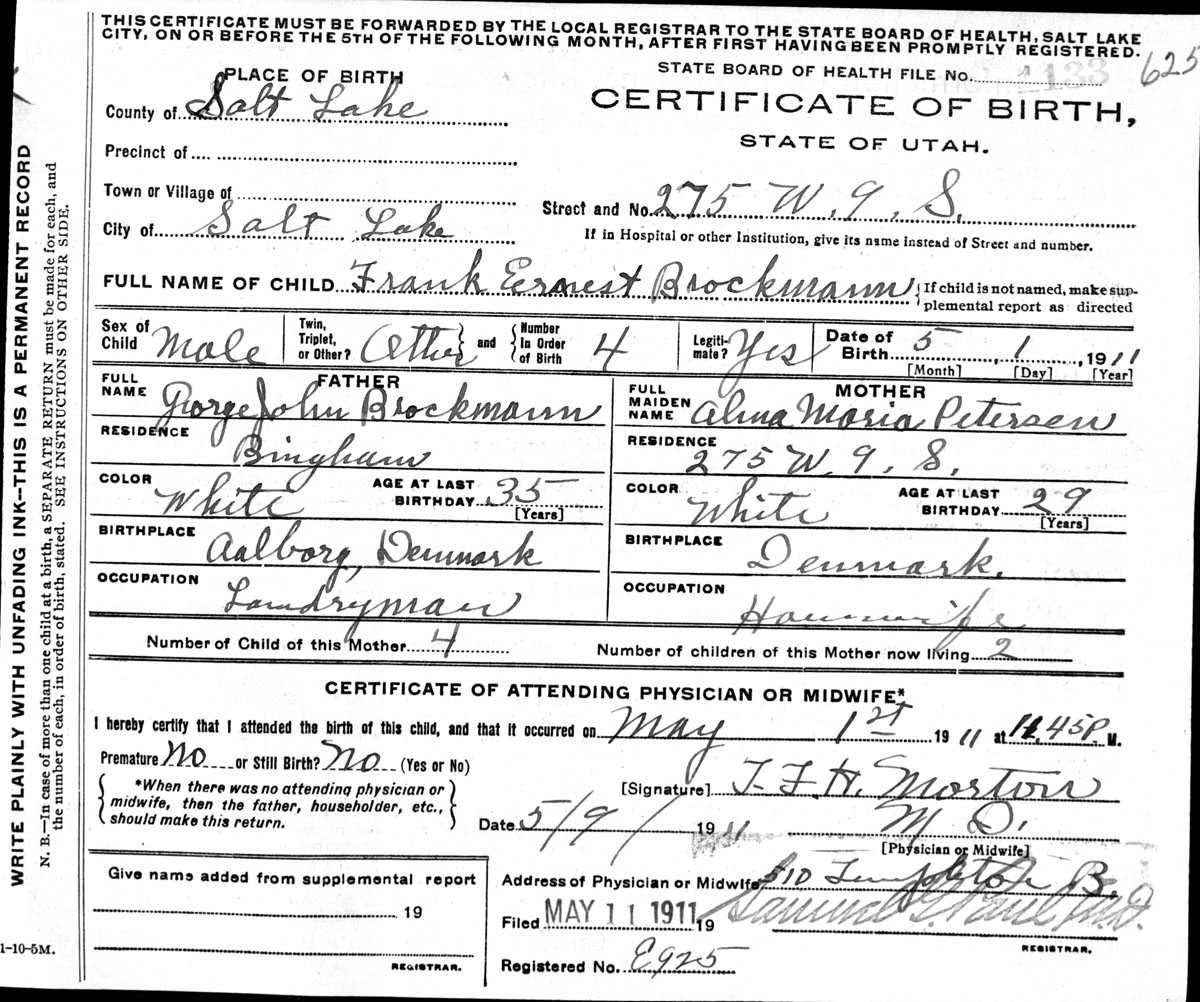 THIS CERTIFICATE MUST BE FORWARDED BY THE LOCAL REGISTRAR TO THE STATE BOARD OF HEALTH, SALT LAKE
CITY, ON OR BEFORE THE 5TH OF THE FOLLOWING MONTH, AFTER FIRST HAVING BEEN PROMPTLY REGISTERED.
625
PLACE OF BIRTH
STATE BOARD OF HEALTH FILE No. 1133
County of Salt Lake
CERTIFICATE OF BIRTH,
STATE OF UTAH.
Precinct of
Town or Village of
Street and No. 275 W. 9. S.
City of Salt Lake
If in Hospital or other Institution, give its name instead of Street and number.
FULL NAME OF CHILD Frank Ernest Brockmann
{If child is not named, make sup-
plemental report as directed
Sex of Child Male
Twin, Triplet, or Other? Other } and { Number In Order of Birth 4
Legiti-mate? Yes
Date of Birth 5 1, 1911
[Month] [Day] [Year]
FATHER
FULL NAME George John Brockmann
RESIDENCE Bingham
COLOR White AGE AT LAST BIRTHDAY 35 [Years]
BIRTHPLACE Aalborg, Denmark
OCCUPATION Laundryman
MOTHER
FULL MAIDEN NAME Alma Maria Petersen
RESIDENCE 275 W. 9. S.
COLOR White AGE AT LAST BIRTHDAY 29 [Years]
BIRTHPLACE Denmark.
OCCUPATION Housewife
Number of Child of this Mother 4
Number of children of this Mother now living 2
CERTIFICATE OF ATTENDING PHYSICIAN OR MIDWIFE*
I hereby certify that I attended the birth of this child, and that it occurred on May 1st 1911 at 11.45P. M.
Premature No or Still Birth? No (Yes or No)
{ *When there was no attending physician or
midwife, then the father, householder, etc.,
should make this return. }
[Signature] T. F. H. Morton
Date 5/9/ 1911 M D.
[Physician or Midwife]
Address of Physician or Midwife 810 Templeton B.
Filed MAY 11 1911 19 Samuel G. Paul M.D.
REGISTRAR.
Registered No. E925
Give name added from supplemental report
19
REGISTRAR.
WRITE PLAINLY WITH UNFADING INK—THIS IS A PERMANENT RECORD
N. B.—In case of more than one child at a birth, a SEPARATE RETURN must be made for each, and
the number of each, in order of birth, stated. SEE INSTRUCTIONS ON OTHER SIDE.
1-10-5M.